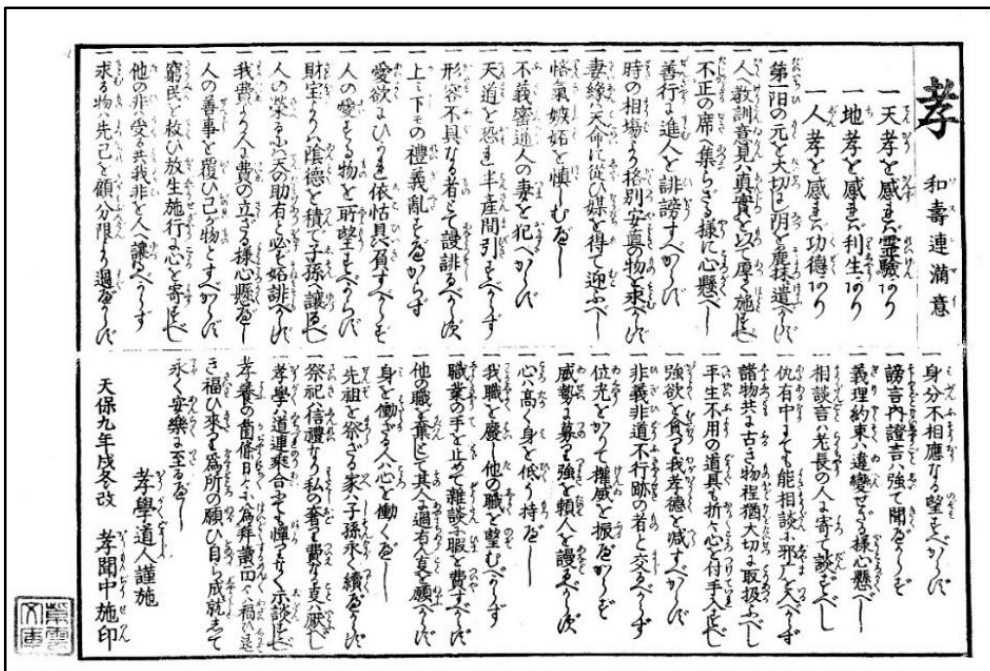 孝 和壽連滿意
一天孝を感ずれば霊驗あり
一地孝を感ずれば利生あり
一人孝を感ずれば功德あり
一第一日の元を大切にし明を麁抹に遣べからず
一人へ教訓意見は真實を以て厚く施すべし
一不正の席へ集らざる様に心懸べし
一善行に進人を誹謗すべからず
一時の相場より格別安直の物を求べからず
一妻縁は天命に從ひ媒を得て迎ふべし
一悋氣嫉妬を慎しむべし
一不義密通人の妻を犯べからず
一天道を恐れ半産間引すべからず
一形容不具なる者とて謾誹るべからず
一上ミ下モの禮義亂すべからず
一愛欲にひかれ依怙贔屓すべからず
一人の愛する物を所望すべからず
一財宝よりは陰德を積て子孫へ讓るべし
一人の榮るは天の助有と心得妬誹べからず
一我費より人に費の立ざる様心懸べし
一人の善事を覆ひ己が物とすべからず
一窮民を救ひ放生施行に心を寄すべし
一他の非は受る共我非を人へ讓るべからず
一求る物は先己を顧分限より過べからず
一身分不相應なる望すべからず
一謗言内證言は強て聞べからず
一義理約束は違變せざる様心懸べし
一相談言は老長の人に寄て談ずべし
一仇有中にても能相談に邪广を入べからず
一諸物共に古き物程猶大切に取扱ふべし
一平生不用の道具も折々心を付手入すべし
一強欲を貪て我孝德を减すべからず
一非義非道不行跡の者と交るべからず
一位光をかりて權威を振べからず
一威勢に募り強を頼人を謾るべからず
一心は高く身を低う持べし
一我職を廢し他の職を望むべからず
一職業の手を止めて雜談に暇を費すべからず
一他の職を奪にて其人の過有ん㕝を願べからず
一身を働ざる人は心を働くべし
一先祖を祭ざる家は子孫永く續べからず
一祭祀は信禮なり私の奢りて費なる㕝は厭べし
一孝學は道連乘合にても憚りなく示談すべし
孝養の箇條日々に為拜讀面々に福ひ退
き福ひ來つて為所の願ひ自ら成就して
永く安樂に至るべし
孝學道人謹施
天保九年戌冬改 孝聞中施印
紫雲文庫